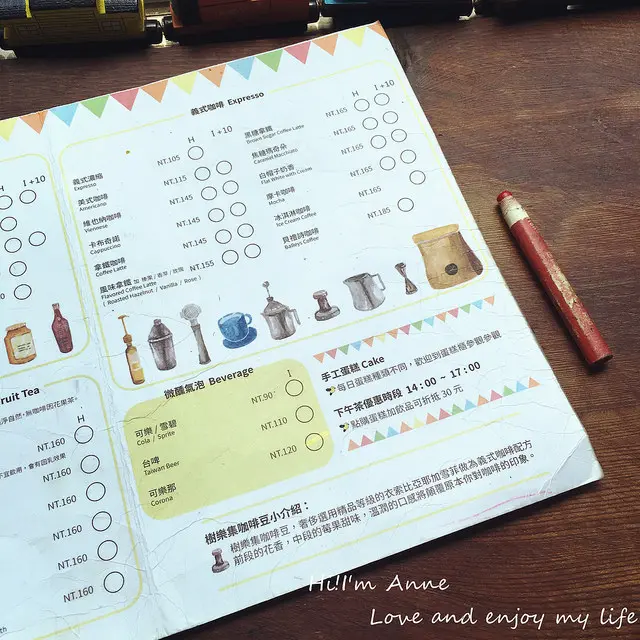 義式咖啡 Expresso
H
I +10
義式濃縮
Expresso
NT.105
美式咖啡
Americano
NT.115
維也納咖啡
Viennese
NT.145
卡布奇諾
Cappuccino
NT.145
拿鐵咖啡
Coffee Latte
NT.145
風味拿鐵 加 榛果/香草/玫瑰
Flavored Coffee Latte
( Roasted Hazelnut / Vanilla / Rose )
NT.155
H
I +10
黑糖拿鐵
Brown Sugar Coffee Latte
NT.165
焦糖瑪奇朵
Caramel Macchiato
NT.165
白帽子奶香
Flat White with Cream
NT.165
摩卡咖啡
Mocha
NT.165
冰淇淋咖啡
Ice Cream Coffee
NT.165
貝禮詩咖啡
Baileys Coffee
NT.185
H
I +10
微醺氣泡 Beverage
I
可樂 / 雪碧
Cola / Sprite
NT.90
台啤
Taiwan Beer
NT.110
可樂那
Corona
NT.120
手工蛋糕 Cake
每日蛋糕種類不同，歡迎到蛋糕櫃參觀參觀
下午茶優惠時段 14：00 ~ 17：00
點購蛋糕加飲品可折抵 30 元
樹樂集咖啡豆小介紹：
樹樂集咖啡豆，奢侈選用精品等級的衣索比亞耶加雪菲做為義式咖啡配方
前段的花香，中段的莓果甜味，溫潤的口感將顛覆原本你對咖啡的印象。
ruit Tea
淨自然，無咖啡因花果茶。
H
NT.160
不宜飲用，會有回乳效果
NT.160
NT.160
NT.160
NT.160
Hi!I'm Anne
Love and enjoy my life